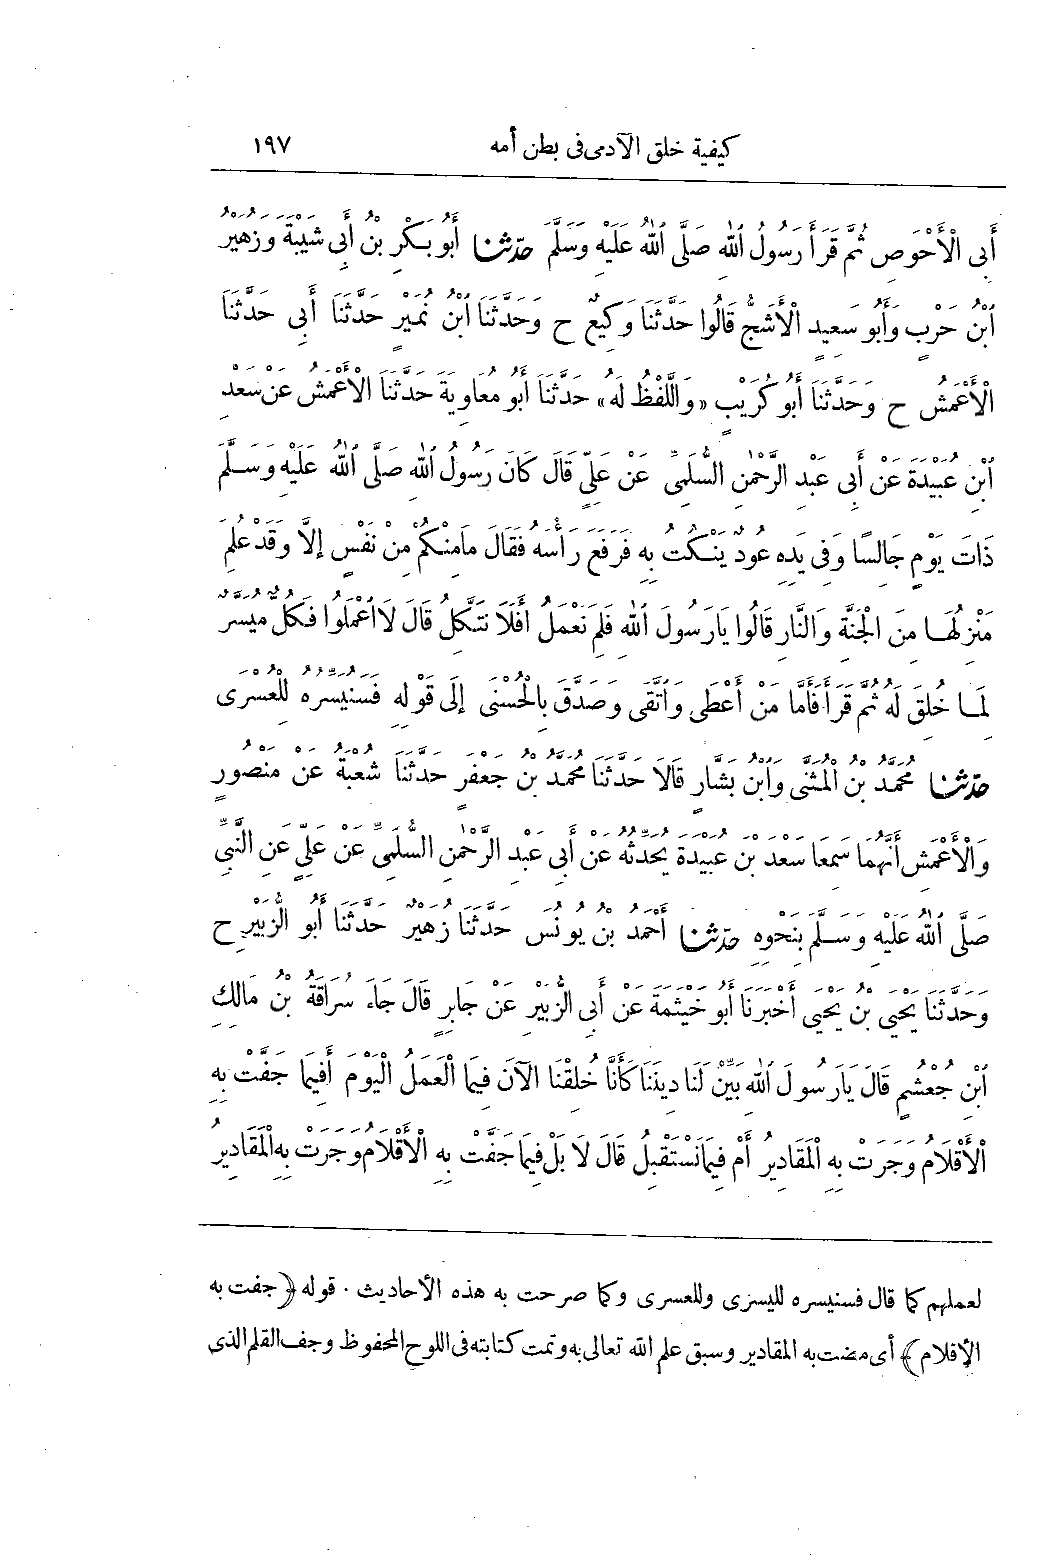 كيفية خلق الآدمى فى بطن أمه ١٩٧
أَبِى الْأَحْوَصِ ثُمَّ قَرَأَ رَسُولُ اللهِ صَلَّى اللهُ عَلَيْهِ وَسَلَّمَ حدثنا أَبُو بَكْرِ بْنُ أَبِى شَيْبَةَ وَزُهَيْرُ
ابْنُ حَرْبٍ وَأَبُو سَعِيدٍ الْأَشَجُّ قَالُوا حَدَّثَنَا وَكِيعٌ ح وَحَدَّثَنَا ابْنُ نُمَيْرٍ حَدَّثَنَا أَبِى حَدَّثَنَا
الْأَعْمَشُ ح وَحَدَّثَنَا أَبُو كُرَيْبٍ «وَاللَّفْظُ لَهُ» حَدَّثَنَا أَبُو مُعَاوِيَةَ حَدَّثَنَا الْأَعْمَشُ عَنْ سَعْدِ
ابْنِ عُبَيْدَةَ عَنْ أَبِى عَبْدِ الرَّحْمٰنِ السُّلَمِىِّ عَنْ عَلِىٍّ قَالَ كَانَ رَسُولُ اللهِ صَلَّى اللهُ عَلَيْهِ وَسَلَّمَ
ذَاتَ يَوْمٍ جَالِسًا وَفِى يَدِهِ عُودٌ يَنْكُتُ بِهِ فَرَفَعَ رَأْسَهُ فَقَالَ مَا مِنْكُمْ مِنْ نَفْسٍ إِلَّا وَقَدْ عُلِمَ
مَنْزِلُهَا مِنَ الْجَنَّةِ وَالنَّارِ قَالُوا يَا رَسُولَ اللهِ فَلِمَ نَعْمَلُ أَفَلَا نَتَّكِلُ قَالَ لَا اعْمَلُوا فَكُلٌّ مُيَسَّرٌ
لِمَا خُلِقَ لَهُ ثُمَّ قَرَأَ فَأَمَّا مَنْ أَعْطَى وَاتَّقَى وَصَدَّقَ بِالْحُسْنَى إِلَى قَوْلِهِ فَسَنُيَسِّرُهُ لِلْعُسْرَى
حدثنا مُحَمَّدُ بْنُ الْمُثَنَّى وَابْنُ بَشَّارٍ قَالَا حَدَّثَنَا مُحَمَّدُ بْنُ جَعْفَرٍ حَدَّثَنَا شُعْبَةُ عَنْ مَنْصُورٍ
وَالْأَعْمَشِ أَنَّهُمَا سَمِعَا سَعْدَ بْنَ عُبَيْدَةَ يُحَدِّثُهُ عَنْ أَبِى عَبْدِ الرَّحْمٰنِ السُّلَمِىِّ عَنْ عَلِىٍّ عَنِ النَّبِىِّ
صَلَّى اللهُ عَلَيْهِ وَسَلَّمَ بِنَحْوِهِ حدثنا أَحْمَدُ بْنُ يُونُسَ حَدَّثَنَا زُهَيْرٌ حَدَّثَنَا أَبُو الزُّبَيْرِ ح
وَحَدَّثَنَا يَحْيَى بْنُ يَحْيَى أَخْبَرَنَا أَبُو خَيْثَمَةَ عَنْ أَبِى الزُّبَيْرِ عَنْ جَابِرٍ قَالَ جَاءَ سُرَاقَةُ بْنُ مَالِكِ
ابْنِ جُعْشُمٍ قَالَ يَا رَسُولَ اللهِ بَيِّنْ لَنَا دِينَنَا كَأَنَّا خُلِقْنَا الْآنَ فِيمَا الْعَمَلُ الْيَوْمَ أَفِيمَا جَفَّتْ بِهِ
الْأَقْلَامُ وَجَرَتْ بِهِ الْمَقَادِيرُ أَمْ فِيمَا نَسْتَقْبِلُ قَالَ لَا بَلْ فِيمَا جَفَّتْ بِهِ الْأَقْلَامُ وَجَرَتْ بِهِ الْمَقَادِيرُ
لعملهم كما قال فسنيسره لليسرى وللعسرى وكما صرحت به هذه الأحاديث . قوله ﴿جفت به
الأقلام﴾ أى مضت به المقادير وسبق علم الله تعالى به وتمت كتابته فى اللوح المحفوظ وجف القلم الذى